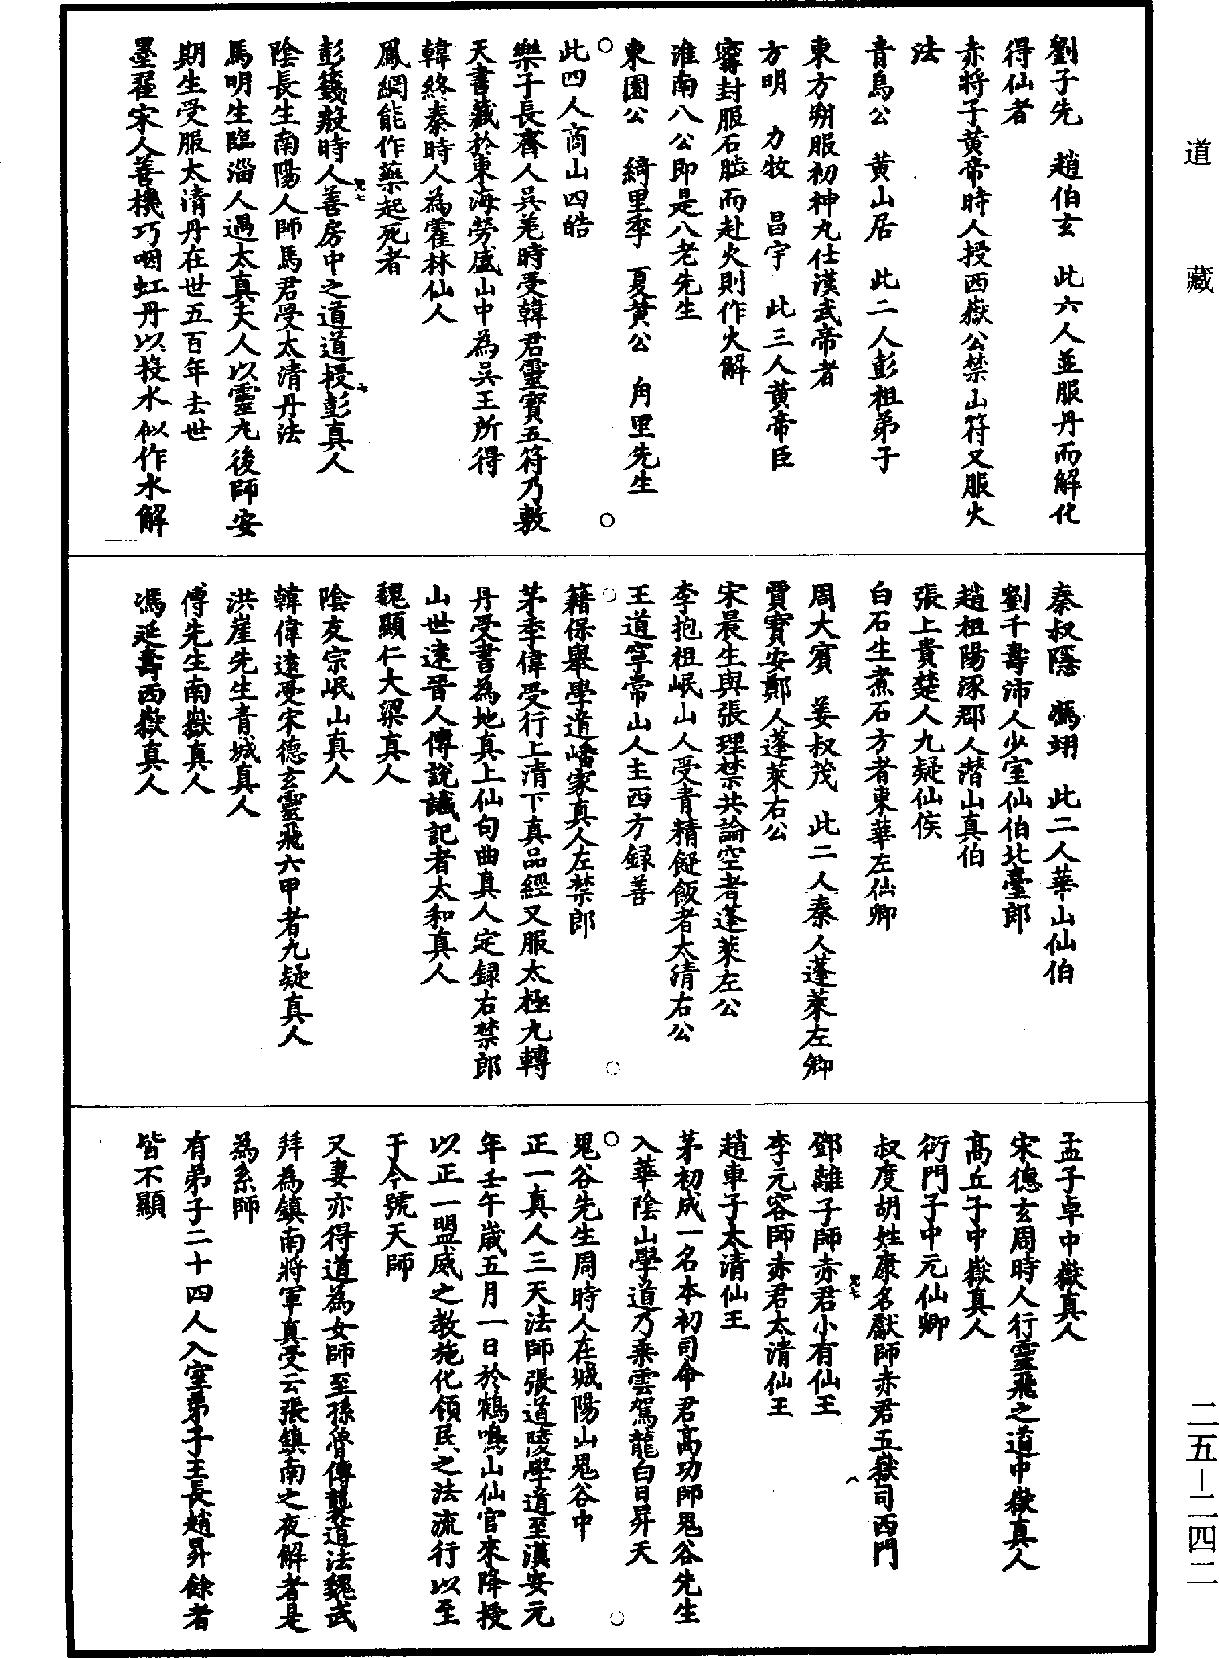 道藏
劉子先　趙伯玄　此六人並服丹而解化
得仙者
赤將子黃帝時人授西嶽公禁山符又服火
法
青烏公　黃山居　此二人彭祖弟子
東方朔服初神丸仕漢武帝者
方明　力牧　昌宇　此三人黃帝臣
甯封服石腦而赴火則作火解
淮南八公即是八老先生
東園公　綺里季　夏黃公　角里先生
此四人商山四皓
樂子長齊人吳羗時受韓君靈寶五符乃敷
天書藏於東海勞盛山中為吳王所得
韓終秦時人為霍林仙人
鳳綱能作藥起死者
彭籛殷時人善房中之道道授彭真人
陰長生南陽人師馬君受太清丹法
馬明生臨淄人遇太真夫人以靈丸後師安
期生受服太清丹在世五百年去世
墨翟宋人善機巧咽虹丹以投水似作水解
秦叔隱　馮翊　此二人華山仙伯
劉千壽沛人少室仙伯北臺郎
趙祖陽涿郡人潛山真伯
張上貴楚人九疑仙侯
白石生煮石方者東華左仙卿
周大賓　姜叔茂　此二人秦人蓬萊左卿
賈寶安鄭人蓬萊右公
宋晨生與張理禁共論空者蓬萊左公
李抱祖岷山人受青精𩚳飯者太清右公
王道寧常山人主西方録善
籍保舉學道嶓冢真人左禁郎
茅季偉受行上清下真品經又服太極九轉
丹受書為地真上仙句曲真人定録右禁郎
山世遠晉人傳說讖記者太和真人
魏顯仁大梁真人
陰友宗岷山真人
韓偉遠受宋德玄靈飛六甲者九疑真人
洪崖先生青城真人
傅先生南嶽真人
馮延壽西嶽真人
孟子卓中嶽真人
宋德玄周時人行靈飛之道中嶽真人
高丘子中嶽真人
衍門子中元仙卿
叔度胡姓康名獻師赤君五嶽司西門
鄧離子師赤君小有仙王
李元容師赤君太清仙王
趙車子太清仙王
茅初成一名本初司命君高功師鬼谷先生
入華陰山學道乃乘雲駕龍白日昇天
鬼谷先生周時人在城陽山鬼谷中
正一真人三天法師張道陵學道至漢安元
年壬午歲五月一日於鶴鳴山仙官來降授
以正一盟威之教施化領民之法流行以至
于今號天師
又妻亦得道為女師至孫魯傳襲道法魏武
拜為鎮南將軍真受云張鎮南之夜解者是
為系師
有弟子二十四人入室弟子王長趙昇餘者
皆不顯
二五—二四二